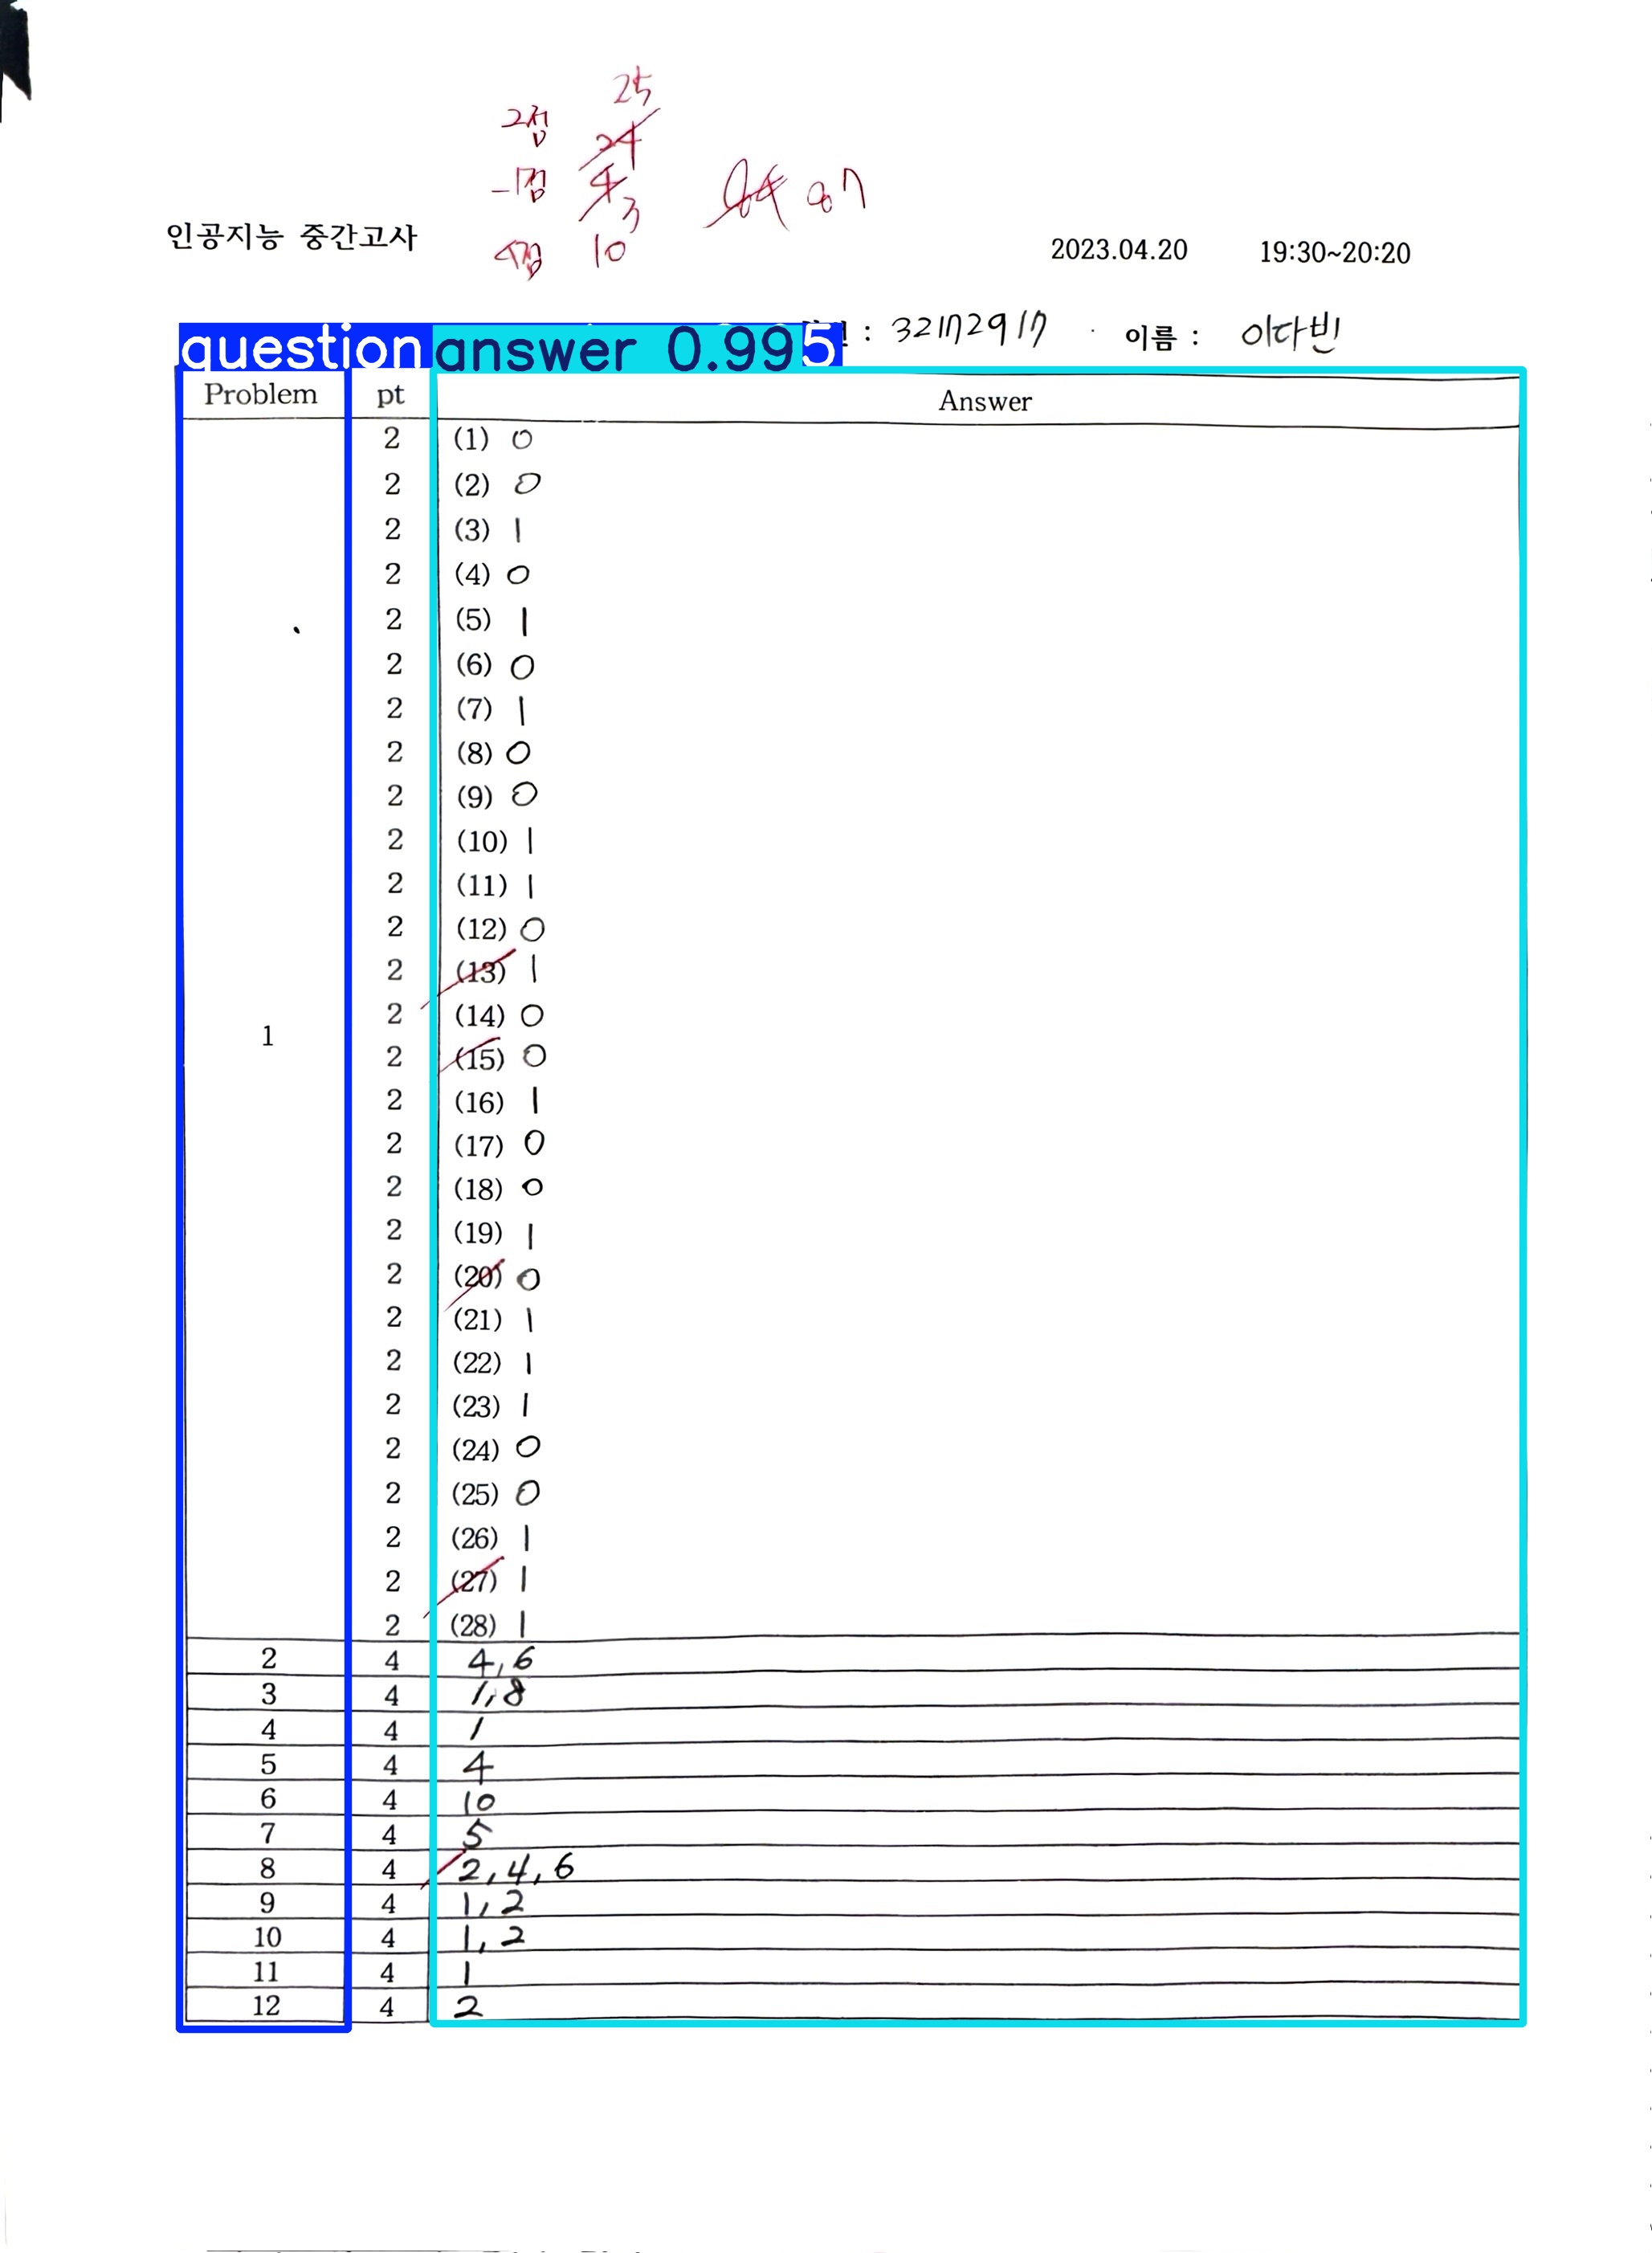 25
2점 24
-1점 4 3 84 87
4점 10
인공지능 중간고사 2023.04.20 19:30~20:20
question answer 0.995 : 32172917 이름 : 이다빈
Problem pt Answer
2 (1) 0
2 (2) 0
2 (3) 1
2 (4) 0
2 (5) 1
2 (6) 0
2 (7) 1
2 (8) 0
2 (9) 0
2 (10) 1
2 (11) 1
2 (12) 0
2 (13) 1
2 (14) 0
1 2 (15) 0
2 (16) 1
2 (17) 0
2 (18) 0
2 (19) 1
2 (20) 0
2 (21) 1
2 (22) 1
2 (23) 1
2 (24) 0
2 (25) 0
2 (26) 1
2 (27) 1
2 (28) 1
2 4 4,6
3 4 1,8
4 4 1
5 4 4
6 4 10
7 4 5
8 4 2,4,6
9 4 1,2
10 4 1,2
11 4 1
12 4 2